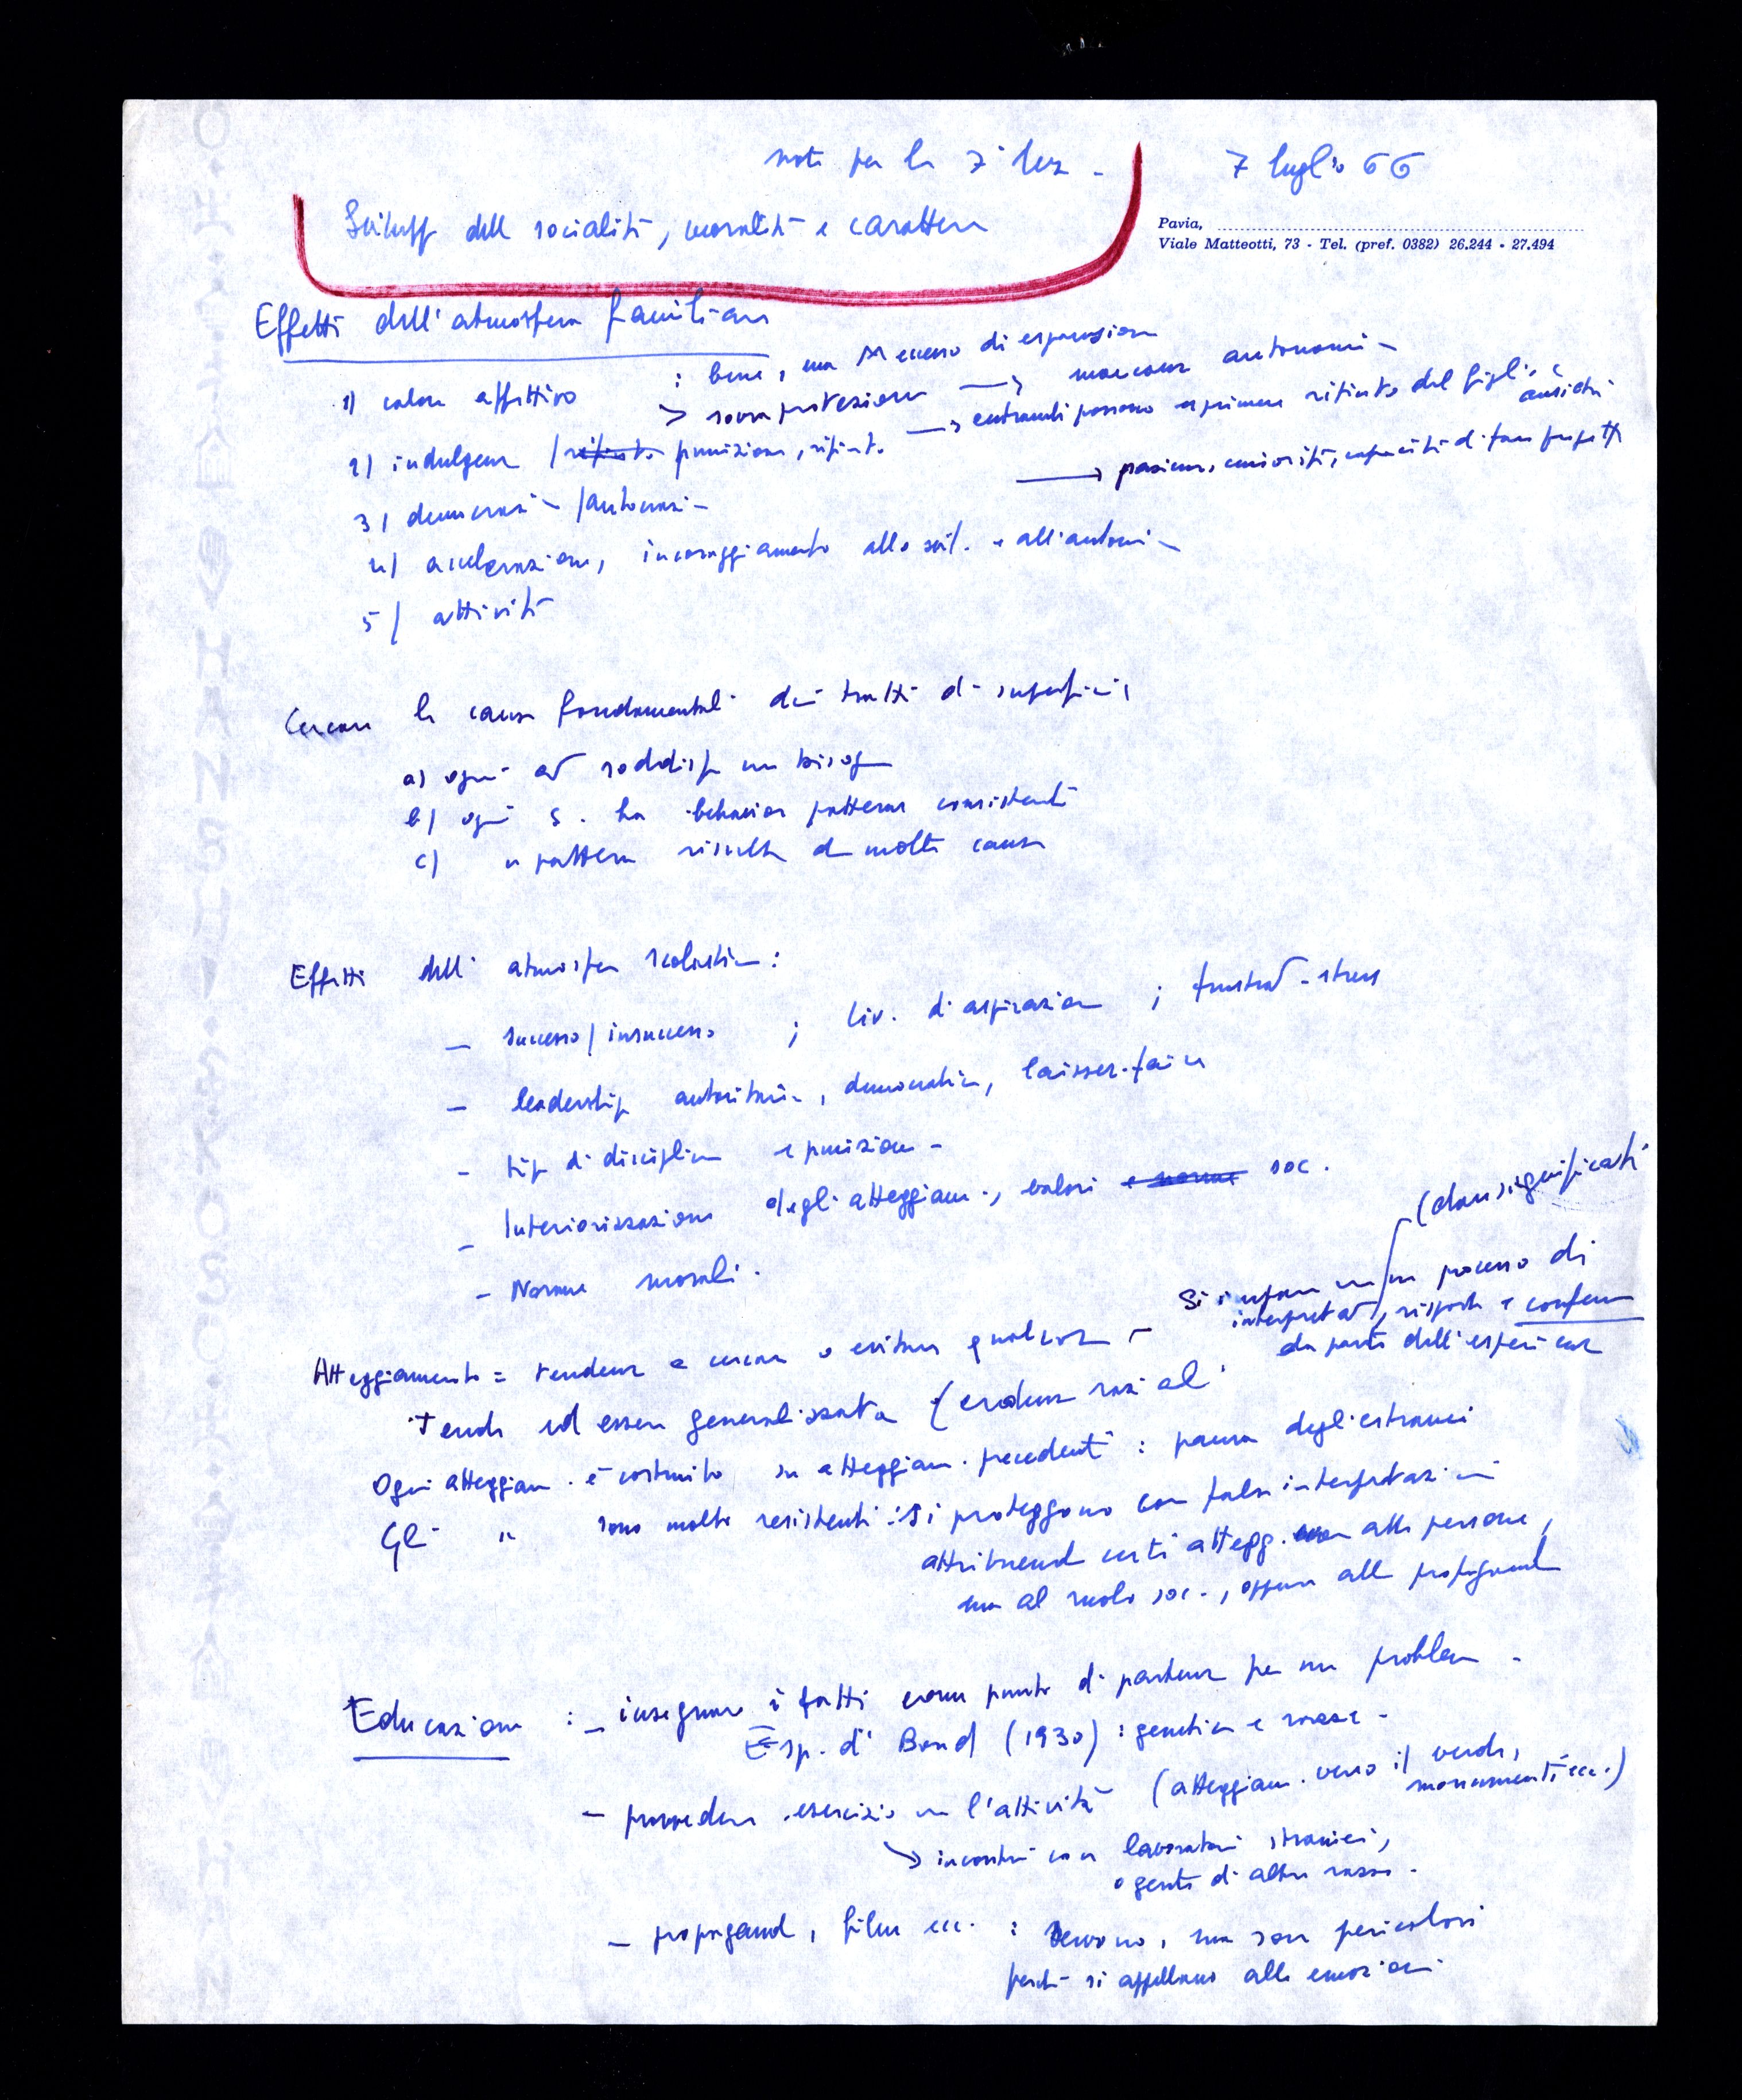 note per la 7ª lez -
7 luglio 66
Pavia,
Viale Matteotti, 73 - Tel. (pref. 0382) 26.244 - 27.494
Sviluppo della socialità, moralità e carattere
Effetti dell'atmosfera familiare
1) calore affettivo : bene, ma eccesso di espansione
> sovraprotezione → mancanza autonomia
2) indulgenza / rifiuto punizione, rifiuto → entrambi possono esprimere rifiuto del figlio, ansietà
3) democrazia / autocrazia → curiosità, capacità di fare progetti
4) accelerazione, incoraggiamento allo svil. e all'autonomia
5) attività
Cercare le cause fondamentali dei tratti di superficie
a) ogni soddisfa un bisogno
b) ogni S. ha behavior patterns consistenti
c) " pattern risulta da molte cause
Effetti dell'atmosfera scolastica:
- successo / insuccesso ; liv. d'aspirazione ; frustraz - stress
- leadership autoritaria, democratica, laisser-faire
- tipo di disciplina e punizione -
- Interiorizzazione degli atteggiam., valori e norme soc.
- Norme morali.
(dare significati
Atteggiamento = tendenza a cercare o evitare qualcosa - Si impara in un processo di
interpretaz, risposta e conferma
da parte dell'esperienza
Tende ad essere generalizzata (credenze razziali
Ogni atteggiam. è costruito su atteggiam. precedenti : paura degli estranei
Gli " sono molto resistenti : si proteggono con false interpretazioni
attribuendo certi attegg. alle persone,
ma al ruolo soc., oppure alla propaganda
Educazione : - insegnare i fatti come punto di partenza per un problema -
Esp. di Bond (1930) : genetica e razza -
- provvedere esercizio con l'attività (atteggiam. verso il verde,
monumenti ecc.)
→ incontri con lavoratori stranieri,
o gente di altra razza -
- propaganda, film ecc. : servono, ma sono pericolosi
perché si appellano alle emozioni